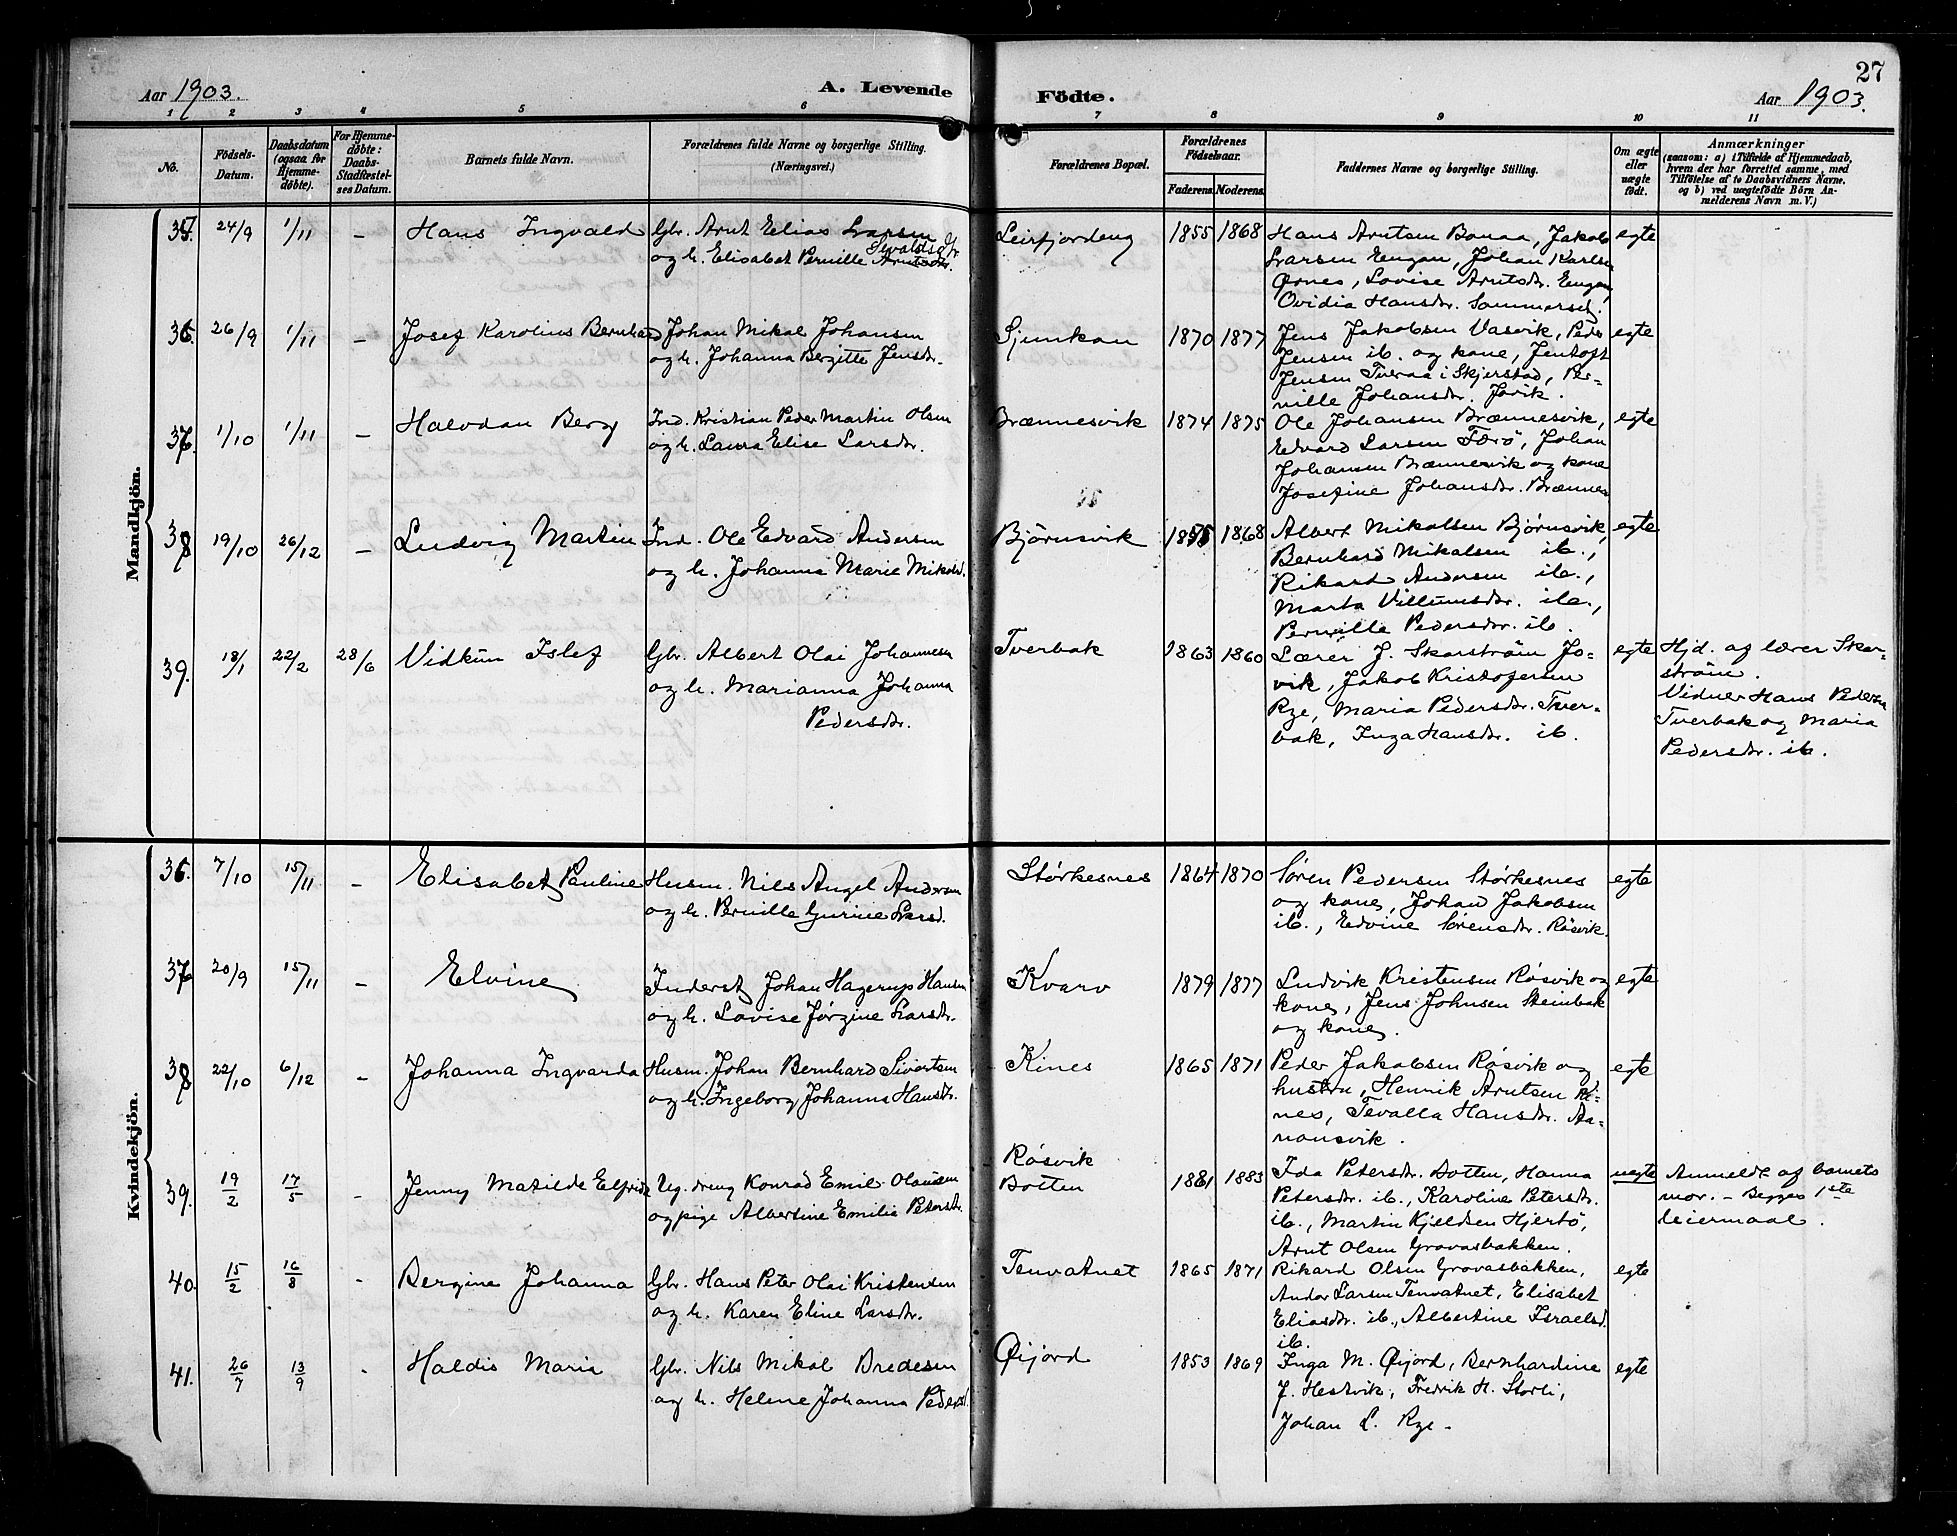 27
Aar 1903. A. Levende Födte. Aar 1903.
1 2 3 4 5 6 7 8 9 10 11
No.
Födsels-
Datum.
Daabsdatum
(ogsaa for
Hjemme-
döbte).
For Hjemme-
döbte:
Daabs-
Stadfæstel-
ses Datum.
Barnets fulde Navn.
Forældrenes fulde Navne og borgerlige Stilling.
(Næringsvei.)
Forældrenes Bopæl.
Forældrenes
Födselsaar.
Faderens. Moderens.
Faddernes Navne og borgerlige Stilling.
Om ægte
eller
uægte
födt.
Anmærkninger
(saasom: a) i Tilfælde af Hjemmedaab,
hvem der har forrettet samme, med
Tilföielse af to Daabsvidners Navne,
og b) ved uægtefödte Börn An-
melderens Navn m. V.)
Mandkjön.
35. 24/9 1/11 - Hans Ingvald
Gbr. Arnt Elias Larsen
og h. Elisabet Pernille Arntsdr.
Sevaldsdtr
Leirfjordeng 1855 1868
Hans Arntsen Bonaa, Jakob
Larsen Engan, Johan Karlsen
Ørnes, Lovise Arntsdr. Engan,
Ovidia Hansdr. Sommerset.
egte
36. 26/9 1/11 - Josef Karolius Bernhard
Johan Mikal Johansen
og h. Johanna Bergitte Jensdr.
Sjunkan 1870 1877
Jens Jakobsen Vasvik, Peder
Jensen ib. og kone, Jentoft
Jensen Tveraa i Skjerstad, Per-
nille Johansdr. Jovik.
egte
37. 1/10 1/11 - Halvdan Berg
Ind. Kristian Peder Martin Olsen
og h. Laura Elise Larsdr.
Brænnesvik 1874 1875
Ole Johansen Brænnesvik,
Edvard Larsen Færö, Johan
Johansen Brænnesvik og kone
Josefine Johansdr. Brænnes
egte
38 19/10 26/12 - Ludvig Martin
Ind. Ole Edvard Andersen
og h. Johanna Marie Mikalsd.
Bjørnsvik 1868
Albert Mikalsen Bjørnsvik,
Bernhard Mikalsen ib.,
Rikard Andersen ib.,
Marta Villumsdr. ib.,
Pernille Pedersdr. ib.
egte
39. 18/1 22/2 28/6 Vidkun Islef
Gbr. Albert Olai Johannesen
og h. Marianna Johanna
Pedersdr.
Tverbak 1863 1860
Lærer J. Skarström Jo-
vik, Jakob Kristofersen
Rye, Maria Pedersdr. Tver-
bak, Inga Hansdr. ib.
egte
Hjd. af lærer Skar-
ström.
Vidner Hans Pedersen
Tverbak og Maria
Pedersdr. ib.
Kvindekjön.
36. 7/10 15/11 - Elisabet Pauline
Husm. Nils Angel Andersen
og h. Pernille Gurine Larsd.
Størkesnes 1864 1870
Sören Pedersen Størkesnes
og kone, Johan Jakobsen
ib., Edvine Sørensdr. Røsvik.
egte
37 20/9 15/11 - Elvine
Inderst Johan Hagerup Hansen
og h. Lovise Jørgine Larsdr.
Kvarv 1879 1877
Ludvik Kristensen Røsvik og
kone, Jens Johnsen Steinbak
og kone.
egte
38 22/10 6/12 - Johanna Ingvarda
Husm. Johan Bernhard Sivertsen
og h. Ingeborg Johanna Hansdr.
Kines 1865 1871
Peder Jakobsen Røsvik og
hustru, Henrik Arntsen Ki-
nes, Tevalla Hansdr. Aa-
nonsvik.
egte
39. 19/2 17/5 - Jenny Matilde Elfride
Ug. dreng Konrad Emil Olausen
og pige Albertine Emilie Petersdr.
Røsvik
Botten
1881 1883
Ida Petersdr. Botten, Hanna
Petersdr. ib., Karoline Petersdr.
ib., Martin Kjeldsen Hjertö,
Arnt Olsen Grovasbakken.
uegte
Anmeldt af barnets
mor. - Begges 1ste
leiermaal.
40. 15/2 16/8 - Bergine Johanna
Gbr. Hans Peter Olai Kristensen
og h. Karen Eline Larsdr.
Tenvatnet 1865 1871
Rikard Olsen Grovasbakken,
Andor Larsen Tenvatnet, Elisabet
Eliasdr. ib., Albertine Israelsd.
ib.
egte
41. 26/7 13/9 - Haldis Maria
Gbr. Nils Mikal Bredesen
og h. Helene Johanna Pedersd.
Øijord 1853 1869
Inga M. Øijord, Bernhardine
J. Hestvik, Fredrik H. Storli,
Johan L. Rye -
egte